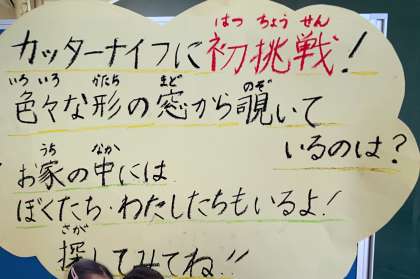 はつ ちょう せん
カッターナイフに初挑戦!
いろ いろ かたち まど のぞ
色々な形の窓から覗いて
いるのは?
うち なか
お家の中には
ぼくたち・わたしたちもいるよ!
さが
探してみてね!!